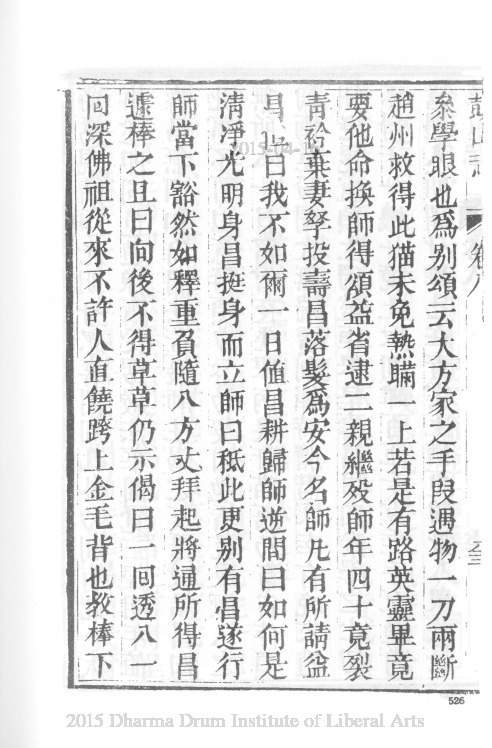 鼓山志 卷八
參學眼也爲別頌云大方家之手段遇物一刀兩斷
趙州救得此猫未免熱瞞一上若是有路英靈畢竟
要他命換師得頌益省逮二親繼歿師年四十竟裂
青衿棄妻孥投壽昌落髮爲安今名師凡有所請益
昌必曰我不如爾一日值昌耕歸師逆問曰如何是
清淨光明身昌挺身而立師曰秪此更別有昌遂行
師當下豁然如釋重負隨入方丈拜起將通所得昌
遽棒之且曰向後不得草草仍示偈曰一回透入一
回深佛祖從來不許人直饒跨上金毛背也教棒下
526
2015-04-10
2015 Dharma Drum Institute of Liberal Arts